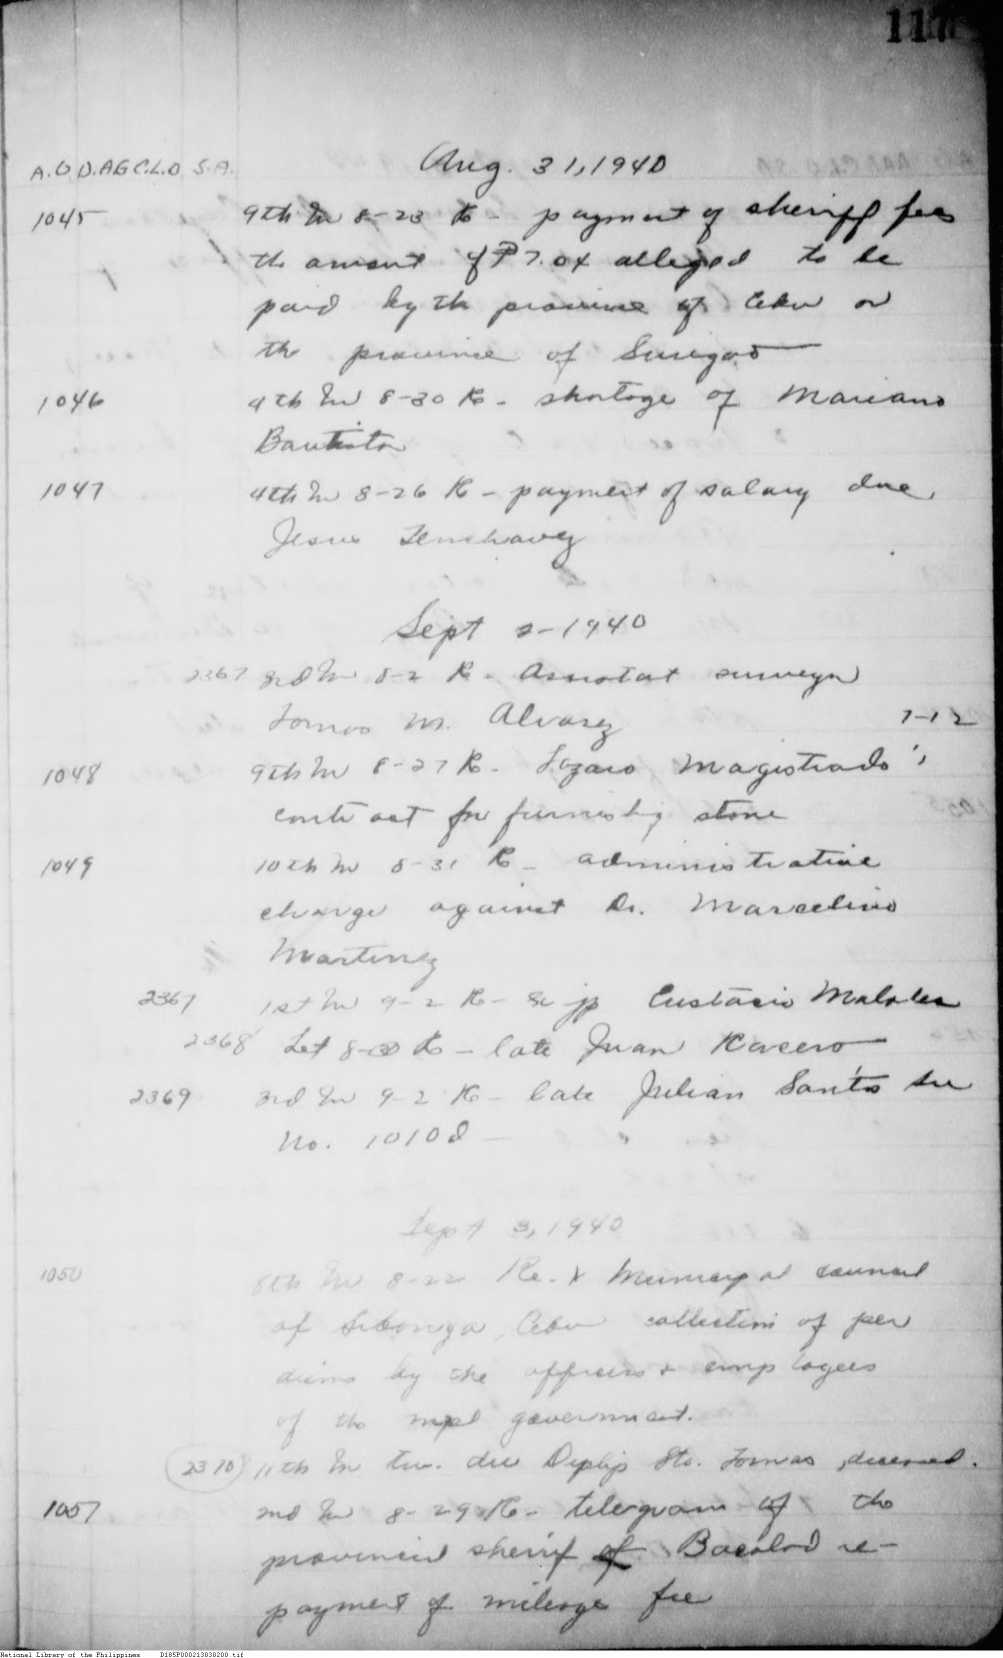 117
A.O D.AG C.L.O S.A.
Aug. 31, 1940
1045 9th In 8-23 Re - payment of sheriff fees
the amount of ₱7.04 alleged to be
paid by the province of Cebu or
the province of Surigao
1046 4th In 8-30 Re - shortage of Mariano
Bautista
1047 4th In 8-26 Re - payment of salary due
Jesus
Sept 2-1940
2367 3rd In 8-2 Re - Assistant surveyor
Tomas M. Alvarez 7-12
1048 9th In 8-27 Re - Lozaro Magistrado's
contract for furnishing stone
1049 10th In 8-31 Re - administrative
charge against Dr. Marcelino
Martinez
2367 1st In 9-2 Re - jp Eustacio
2368 Let 8-30 Re - late Juan
2369 3rd In 9-2 Re - late Julian Santos
No. 10108
Sept 3, 1940
1050 8th In 8-22 Re. Municipal council
of Sibonga, Cebu collection of per
diems by the officers & employees
of the mpl government.
2370 11th In Sto. Tomas, deceased.
1057 2nd In 8-29 Re - telegram of the
provincial sheriff of Bacolod re-
payment of mileage fee
National Library of the Philippines D185P000213838200.tif